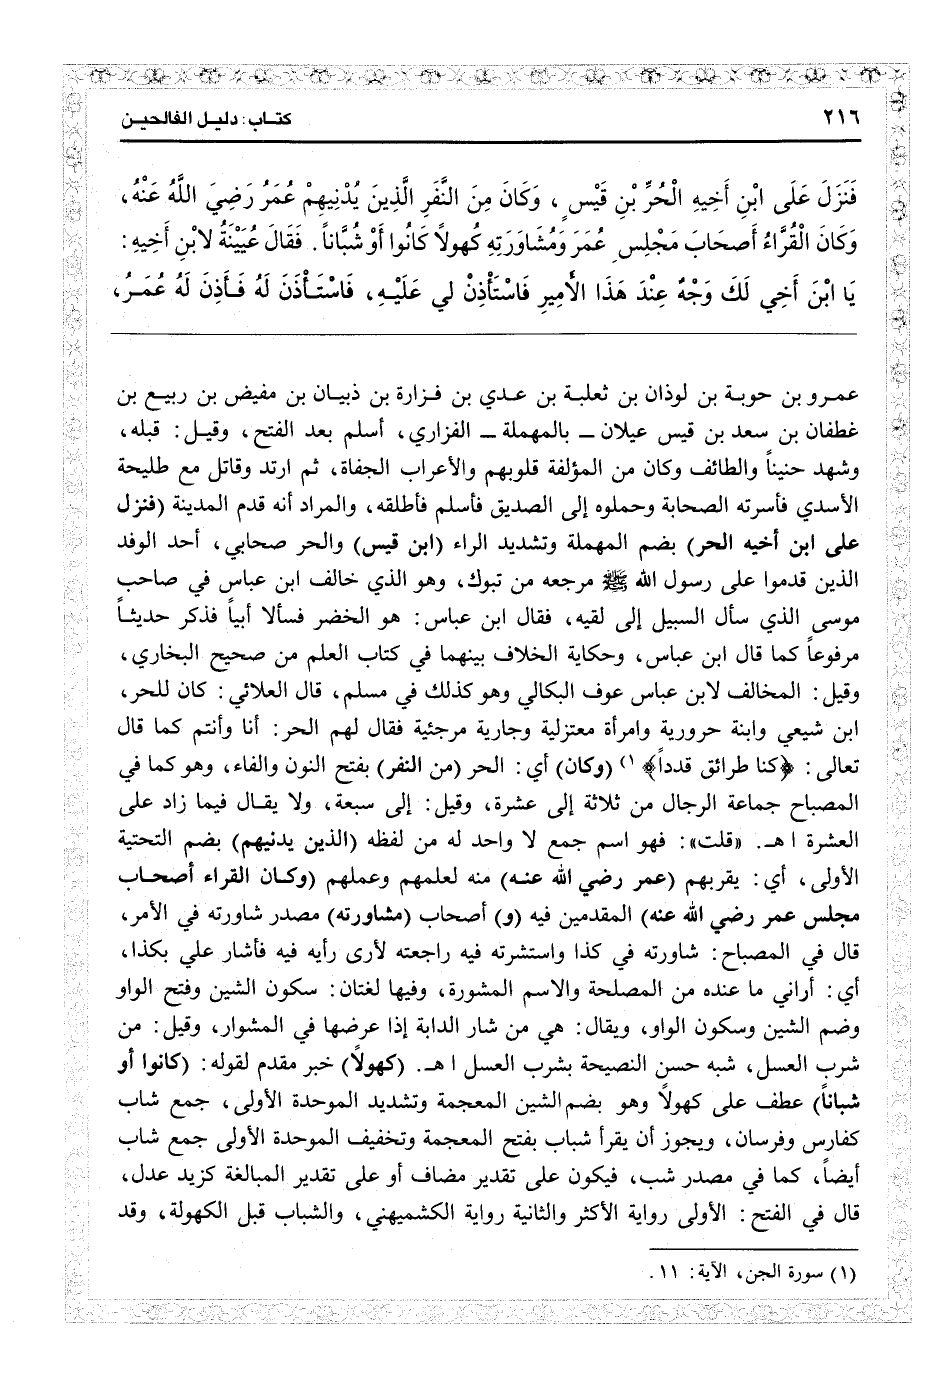 ٢١٦
كتاب: دليل الفالحين
فَنَزَلَ عَلَى ابْنِ أَخِيهِ الْحُرِّ بْنِ قَيْسٍ، وَكَانَ مِنَ النَّفَرِ الَّذِينَ يُدْنِيهِمْ عُمَرُ رَضِيَ اللَّهُ عَنْهُ،
وَكَانَ الْقُرَّاءُ أَصحَابَ مَجْلِسِ عُمَرَ وَمُشَاوَرَتِهِ كُهولاً كَانُوا أَوْ شُبَّاناً. فَقَالَ عُيَيْنَةُ لابْنِ أَخِيهِ:
يَا ابْنَ أَخِي لَكَ وَجْهٌ عِنْدَ هَذَا الأَمِيرِ فَاسْتَأْذِنْ لي عَلَيْهِ، فَاسْتَأْذَنَ لَهُ فَأَذِنَ لَهُ عُمَرُ،
عمرو بن حوبة بن لوذان بن ثعلبة بن عدي بن فزارة بن ذبيان بن مفيض بن ربيع بن
غطفان بن سعد بن قيس عيلان ـ بالمهملة ـ الفزاري، أسلم بعد الفتح، وقيل: قبله،
وشهد حنيناً والطائف وكان من المؤلفة قلوبهم والأعراب الجفاة، ثم ارتد وقاتل مع طليحة
الأسدي فأسرته الصحابة وحملوه إلى الصديق فأسلم فأطلقه، والمراد أنه قدم المدينة (فنزل
على ابن أخيه الحر) بضم المهملة وتشديد الراء (ابن قيس) والحر صحابي، أحد الوفد
الذين قدموا على رسول الله ﷺ مرجعه من تبوك، وهو الذي خالف ابن عباس في صاحب
موسى الذي سأل السبيل إلى لقيه، فقال ابن عباس: هو الخضر فسألا أبياً فذكر حديثاً
مرفوعاً كما قال ابن عباس، وحكاية الخلاف بينهما في كتاب العلم من صحيح البخاري،
وقيل: المخالف لابن عباس عوف البكالي وهو كذلك في مسلم، قال العلائي: كان للحر،
ابن شيعي وابنة حرورية وامرأة معتزلية وجارية مرجئية فقال لهم الحر: أنا وأنتم كما قال
تعالى: ﴿كنا طرائق قدداً﴾ (١) (وكان) أي: الحر (من النفر) بفتح النون والفاء، وهو كما في
المصباح جماعة الرجال من ثلاثة إلى عشرة، وقيل: إلى سبعة، ولا يقال فيما زاد على
العشرة اهـ. «قلت»: فهو اسم جمع لا واحد له من لفظه (الذين يدنيهم) بضم التحتية
الأولى، أي: يقربهم (عمر رضي الله عنه) منه لعلمهم وعملهم (وكان القراء أصحاب
مجلس عمر رضي الله عنه) المقدمين فيه (و) أصحاب (مشاورته) مصدر شاورته في الأمر،
قال في المصباح: شاورته في كذا واستشرته فيه راجعته لأرى رأيه فيه فأشار علي بكذا،
أي: أراني ما عنده من المصلحة والاسم المشورة، وفيها لغتان: سكون الشين وفتح الواو
وضم الشين وسكون الواو، ويقال: هي من شار الدابة إذا عرضها في المشوار، وقيل: من
شرب العسل، شبه حسن النصيحة بشرب العسل اهـ. (كهولاً) خبر مقدم لقوله: (كانوا أو
شباناً) عطف على كهولاً وهو بضم الشين المعجمة وتشديد الموحدة الأولى، جمع شاب
كفارس وفرسان، ويجوز أن يقرأ شباب بفتح المعجمة وتخفيف الموحدة الأولى جمع شاب
أيضاً، كما في مصدر شب، فيكون على تقدير مضاف أو على تقدير المبالغة كزيد عدل،
قال في الفتح: الأولى رواية الأكثر والثانية رواية الكشميهني، والشباب قبل الكهولة، وقد
(١) سورة الجن، الآية: ١١.